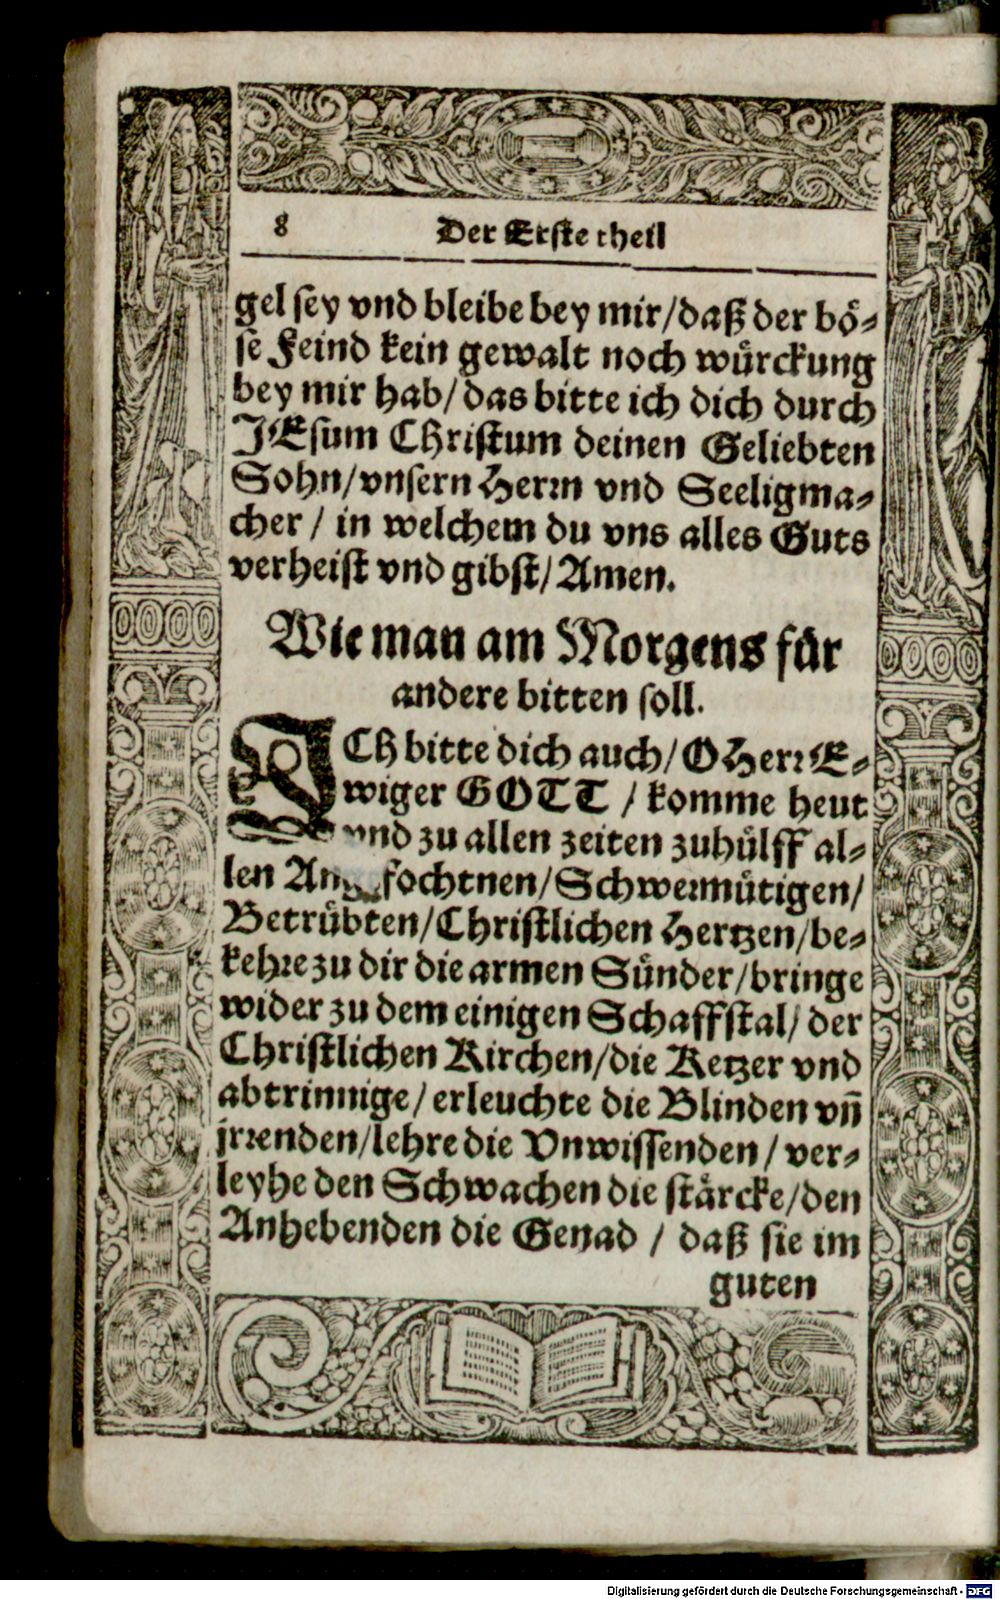 8 Der Erste theil
gel sey vnd bleibe bey mir/daß der bö-
se Feind kein gewalt noch würckung
bey mir hab/das bitte ich dich durch
JEsum CHristum deinen Geliebten
Sohn/vnsern Herrn vnd Seeligma-
cher / in welchem du vns alles Guts
verheist vnd gibst/Amen.
Wie man am Morgens für
andere bitten soll.
ICH bitte dich auch/O Herr E-
wiger GOTT / komme heut
vnd zu allen zeiten zuhülff al-
len Angefochtnen/Schwermütigen/
Betrübten/Christlichen Hertzen/be-
kehre zu dir die armen Sünder/bringe
wider zu dem einigen Schaffstal/ der
Christlichen Kirchen/die Ketzer vnd
abtrinnige/ erleuchte die Blinden vñ
jrrenden/lehre die Vnwissenden / ver-
leyhe den Schwachen die stärcke/den
Anhebenden die Genad / daß sie im
guten
Digitalisierung gefördert durch die Deutsche Forschungsgemeinschaft - DFG